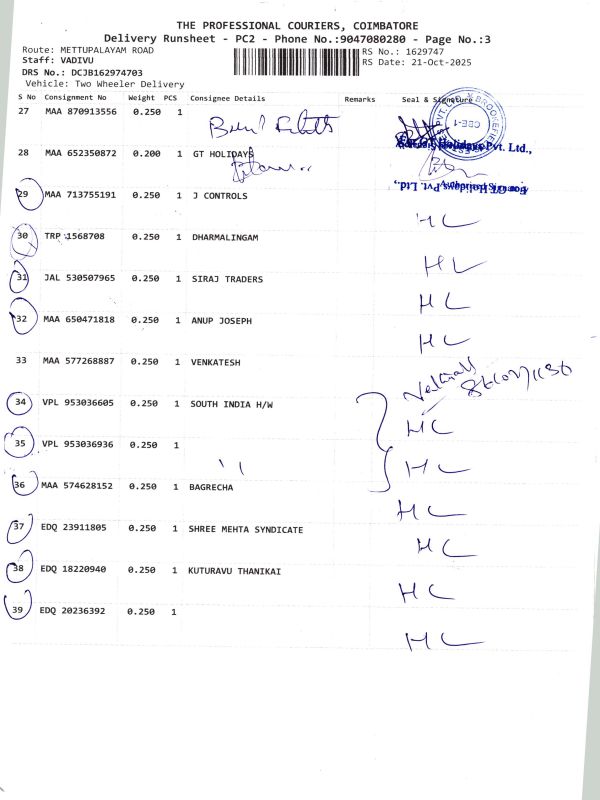 THE PROFESSIONAL COURIERS, COIMBATORE
Delivery Runsheet - PC2 - Phone No.:9047080280 - Page No.:3
Route: METTUPALAYAM ROAD RS No.: 1629747
Staff: VADIVU RS Date: 21-Oct-2025
DRS No.: DCJB162974703
Vehicle: Two Wheeler Delivery
S No Consignment No Weight PCS Consignee Details Remarks Seal & Signature
27 MAA 870913556 0.250 1
28 MAA 652350872 0.200 1 GT HOLIDAYS
29 MAA 713755191 0.250 1 J CONTROLS
HC
30 TRP 1568708 0.250 1 DHARMALINGAM
HC
31 JAL 530507965 0.250 1 SIRAJ TRADERS
HC
32 MAA 650471818 0.250 1 ANUP JOSEPH
HC
33 MAA 577268887 0.250 1 VENKATESH
34 VPL 953036605 0.250 1 SOUTH INDIA H/W
HC
35 VPL 953036936 0.250 1
HC
36 MAA 574628152 0.250 1 BAGRECHA
HC
37 EDQ 23911805 0.250 1 SHREE MEHTA SYNDICATE
HC
38 EDQ 18220940 0.250 1 KUTURAVU THANIKAI
HC
39 EDQ 20236392 0.250 1
HC